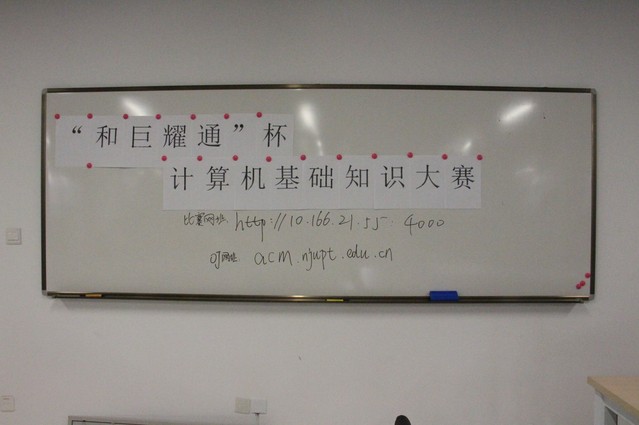 “和巨耀通”杯
计算机基础知识大赛
比赛网址: http://10.166.21.55:4000
OJ网址: acm.njupt.edu.cn